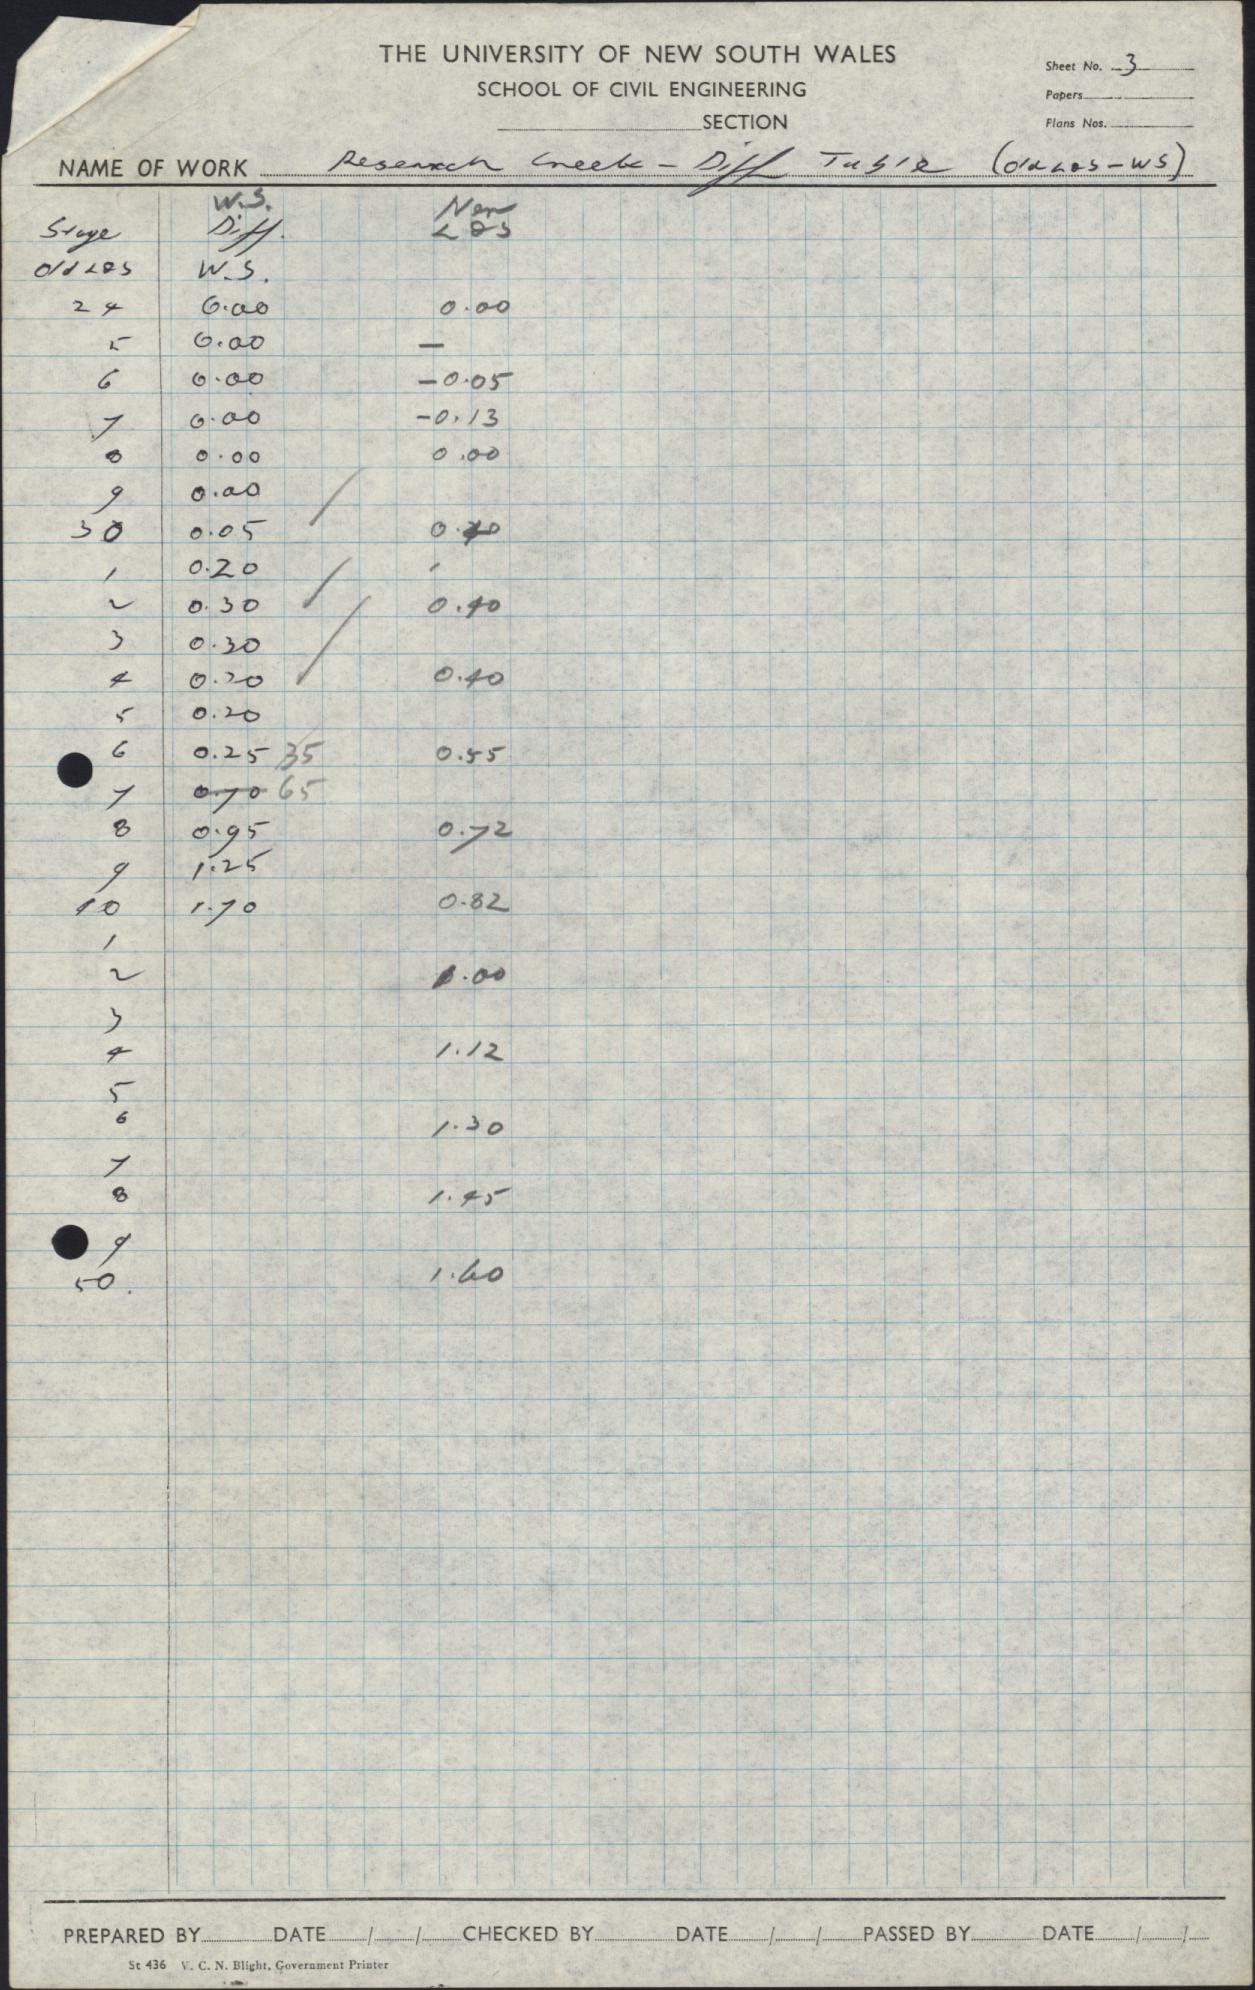 THE UNIVERSITY OF NEW SOUTH WALES
SCHOOL OF CIVIL ENGINEERING
SECTION
Sheet No. 3
Papers
Plans Nos.
NAME OF WORK Research Creek - Diff Table (Old LOS - WS)
W.S. New
Stage Diff. LOS
Old LOS W.S.
24 0.00 0.00
5 0.00 —
6 0.00 -0.05
7 0.00 -0.13
8 0.00 0.00
9 0.00
30 0.05
1 0.20
2 0.30 0.40
3 0.30
4 0.20 0.40
5 0.20
6 0.25 35 0.55
7 0.70 65
8 0.95 0.72
9 1.25
40 1.70 0.82
1
2 1.00
3
4 1.12
5
6 1.30
7
8 1.45
9
50. 1.60
PREPARED BY DATE / / CHECKED BY DATE / / PASSED BY DATE / /
St 436 V. C. N. Blight, Government Printer